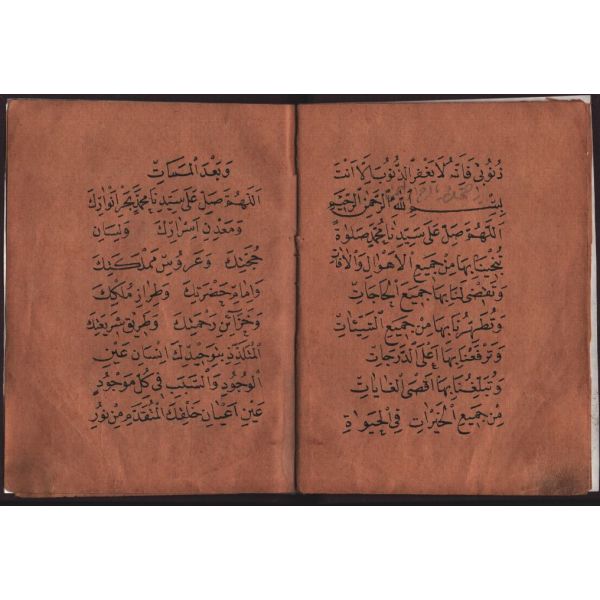 ذُنُوبِي فَاِنَّهُ لَا يَغْفِرُ الذُّنُوبَ اِلَّا اَنْتَ
بِسْمِ اللّٰهِ الرَّحْمٰنِ الرَّحِيمِ
اَللّٰهُمَّ صَلِّ عَلٰى سَيِّدِنَا مُحَمَّدٍ صَلٰوةً
تُنْجِينَا بِهَا مِنْ جَمِيعِ الْاَهْوَالِ وَالْاٰفَاتِ
وَتَقْضِى لَنَا بِهَا جَمِيعَ الْحَاجَاتِ
وَتُطَهِّرُنَا بِهَا مِنْ جَمِيعِ السَّيِّئَاتِ
وَتَرْفَعُنَا بِهَا اَعْلَى الدَّرَجَاتِ
وَتُبَلِّغُنَا بِهَا اَقْصَى الْغَايَاتِ
مِنْ جَمِيعِ الْخَيْرَاتِ فِى الْحَيٰوةِ
وَبَعْدَ الْمَمَاتِ
اَللّٰهُمَّ صَلِّ عَلٰى سَيِّدِنَا مُحَمَّدٍ بَحْرِ اَنْوَارِكَ
وَمَعْدِنِ اَسْرَارِكَ وَلِسَانِ
حُجَّتِكَ وَعَرُوسِ مَمْلَكَتِكَ
وَاِمَامِ حَضْرَتِكَ وَطِرَازِ مُلْكِكَ
وَخَزَائِنِ رَحْمَتِكَ وَطَرِيقِ شَرِيعَتِكَ
الْمُتَلَذِّذِ بِتَوْحِيدِكَ اِنْسَانِ عَيْنِ
الْوُجُودِ وَالسَّبَبِ فِى كُلِّ مَوْجُودٍ
عَيْنِ اَعْيَانِ خَلْقِكَ الْمُتَقَدِّمِ مِنْ نُورِ